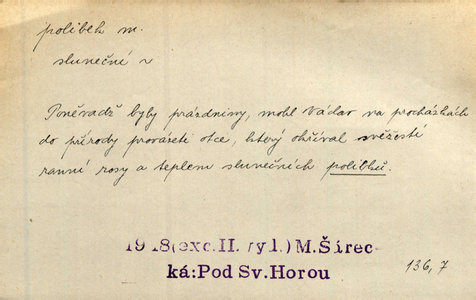 polibek m.
sluneční ~
Poněvadž byly prázdniny, mohl Václav na procházkách
do přírody provázeti otce, který okříval svěžestí
ranní rosy a teplem slunečních polibků.
1918(exc.II.vyl.)M.Šírec-
ká:Pod Sv.Horou
136,7